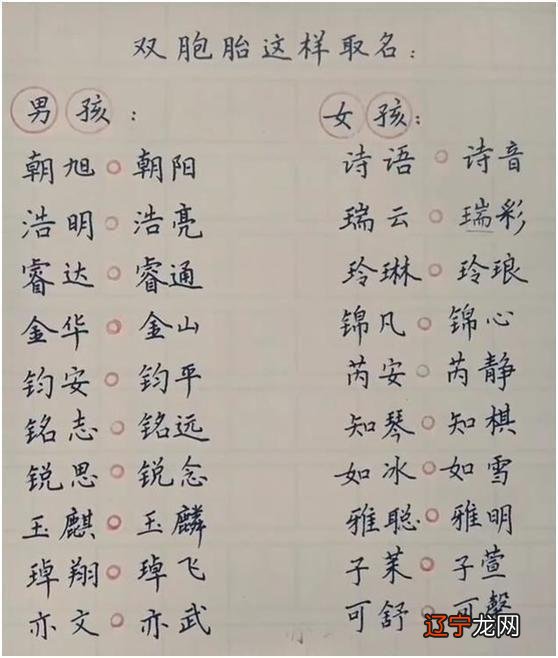 双胞胎这样取名：
男孩：
朝旭。朝阳
浩明。浩亮
睿达。睿通
金华。金山
钧安。钧平
铭志。铭远
锐思。锐念
玉麒。玉麟
琸翔。琸飞
亦文。亦武
女孩：
诗语。诗音
瑞云。瑞彩
玲琳。玲琅
锦凡。锦心
芮安。芮静
知琴。知棋
如冰。如雪
雅聪。雅明
子茉。子萱
可舒。可馨
辽宁龙网